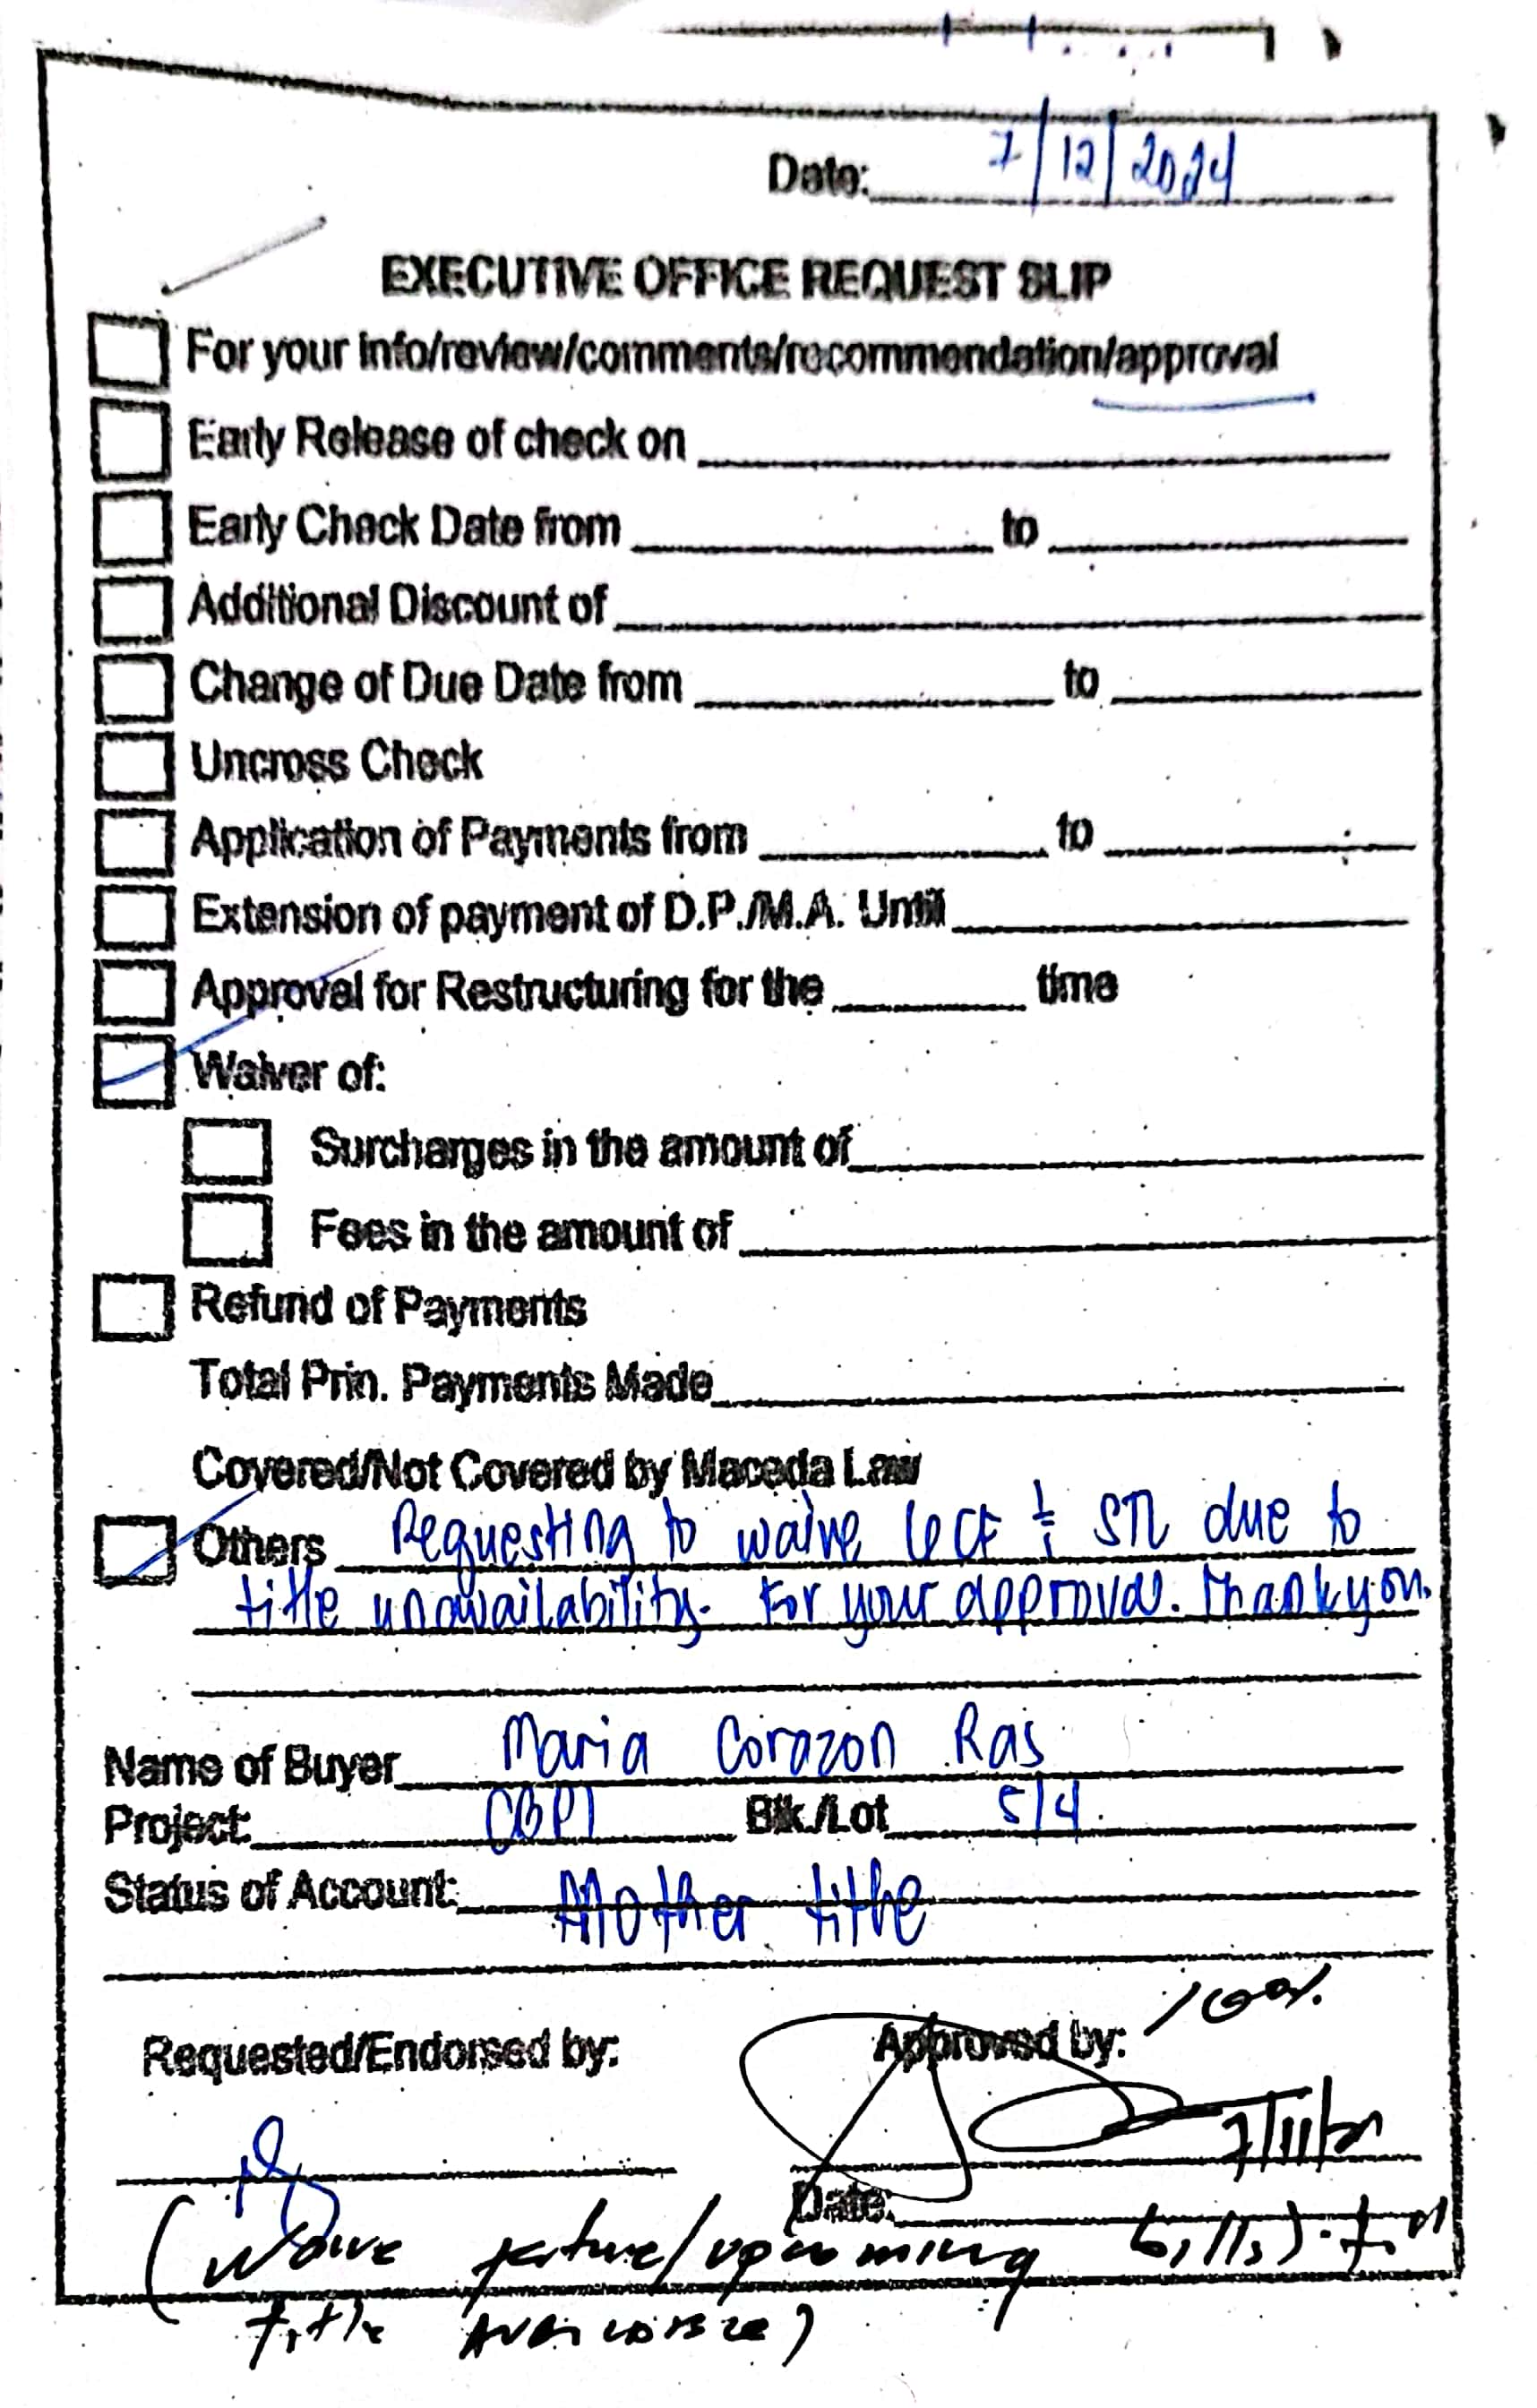 Date: 7/12/2024
EXECUTIVE OFFICE REQUEST SLIP
For your info/review/comments/recommendation/approval
Early Release of check on
Early Check Date from to
Additional Discount of
Change of Due Date from to
Uncross Check
Application of Payments from to
Extension of payment of D.P./M.A. Until
Approval for Restructuring for the time
Waiver of:
Surcharges in the amount of
Fees in the amount of
Refund of Payments
Total Prin. Payments Made
Covered/Not Covered by Maceda Law
Others Requesting to waive due to
title unavailability. For your approval. Thank you.
Name of Buyer Maria Corazon Ras
Project: CBPI Blk./Lot 5/4
Status of Account: Mother title
Requested/Endorsed by: Approved by:
Date:
(Waive future/upcoming bills)
title